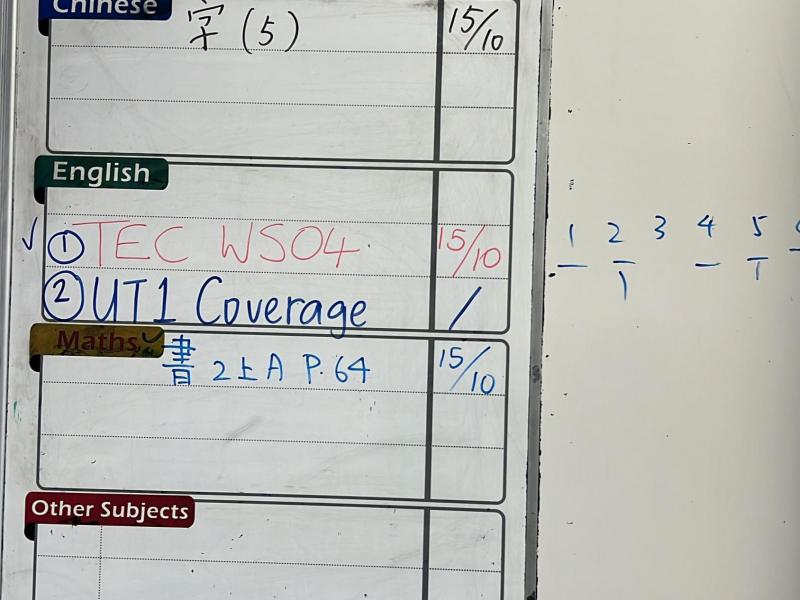 Chinese
字 (5) 15/10
English
✓ ① TEC WS04 15/10
② UT1 Coverage /
Maths
書 2上A P.64 15/10
Other Subjects
1 2 3 4 5